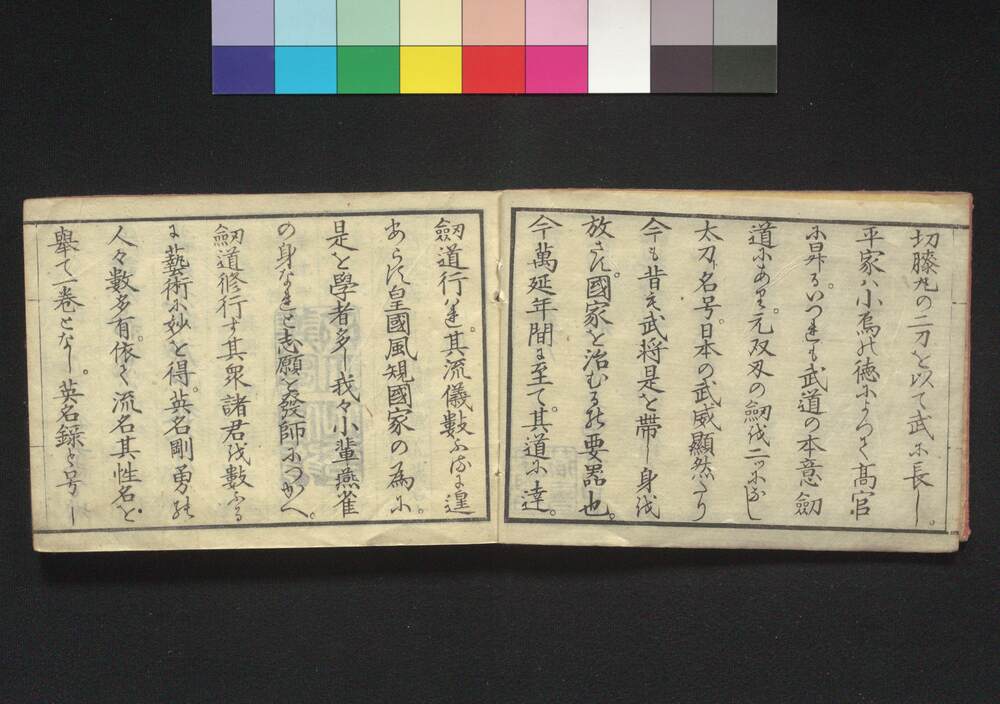 切膝丸の二刀を以て武に長し。
平家ハ小烏の徳によつて高官
に昇る。いつれも武道の本意劔
道にあり。元双刃の劔を二ツになし
太刀ト名号。日本の武威顕然たり
今も昔も武将是を帯し身を
放さす。國家を治むるの要器也。
今萬延年間に至て。其道に達。
劔道行はれ。其流儀数ふるに遑
あらす皇國風規國家の為に。
是を學者多し我々小輩燕雀
の身なれど志願を發師につかへ。
劔道修行す其衆諸君を数ふる
に藝術に妙を得。英名剛勇の
人々數多有。依て流名其性名を
舉て一卷となし。英名録と号し